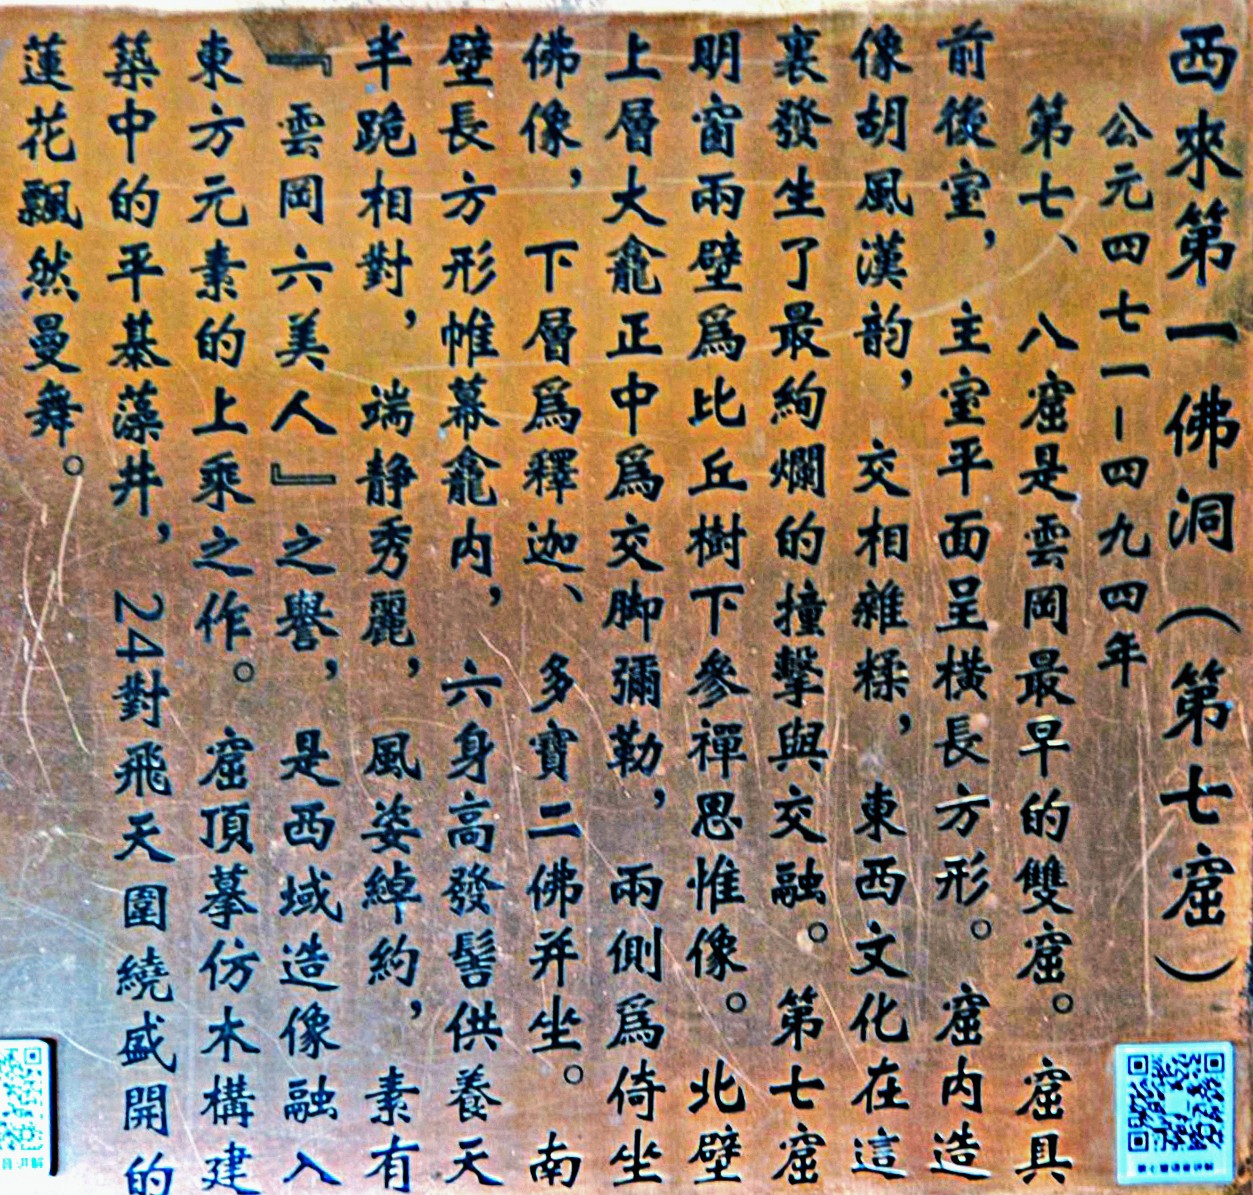 西來第一佛洞（第七窟）
公元四七一－四九四年
第七、八窟是雲岡最早的雙窟。窟具
前後室，主室平面呈橫長方形。窟内造
像胡風漢韵，交相雜糅，東西文化在這
裏發生了最絢爛的撞擊與交融。第七窟
明窗兩壁爲比丘樹下參禪思惟像。北壁
上層大龕正中爲交脚彌勒，兩側爲倚坐
佛像，下層爲釋迦、多寶二佛并坐。南
壁長方形帷幕龕内，六身高發髻供養天
半跪相對，端静秀麗，風姿綽約，素有
『雲岡六美人』之譽，是西域造像融入
東方元素的上乘之作。窟頂摹仿木構建
築中的平棊藻井，24對飛天圍繞盛開的
蓮花飄然曼舞。